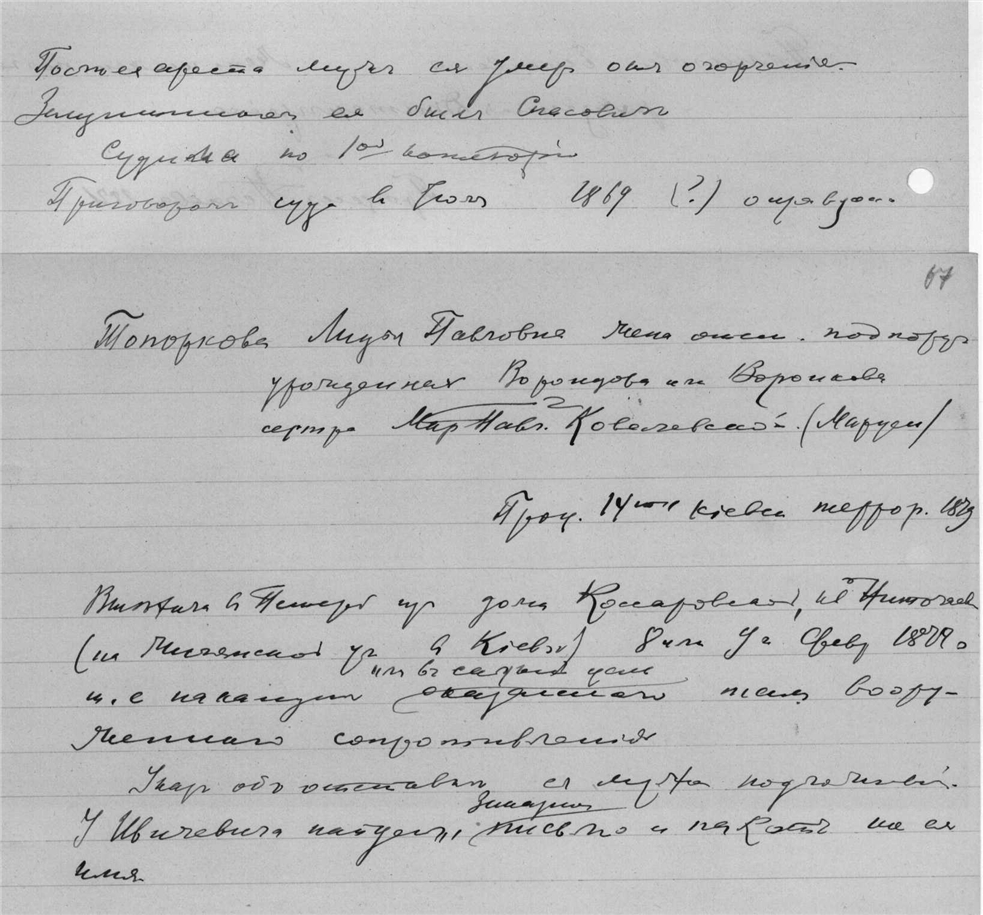 После ареста мужъ ея умер отъ огорченія.
ея былъ Спасовичъ
Судима по 1ой категоріи
Приговоромъ суда въ Іюлѣ 1869 (?) оправдан.
67
Топоркова Лидія Павловна жена отст. подпоруч
урожденная Воронцова или Воронкова
сестра Мар Павл. Ковалевской. (Маруси)
Проц. 14ти кіевск террор. 1879
въ Петерб изъ дома Косаровской,
(на Жилянской ул въ Кіевѣ) 8 или 9 Февр 1879 г
или въ самый день
т. е накануне оказаннаго тамъ воору-
женнаго сопротивленія
Указ объ отставкѣ ея мужа
У Ивичевича найдены письмо и на ея
имя